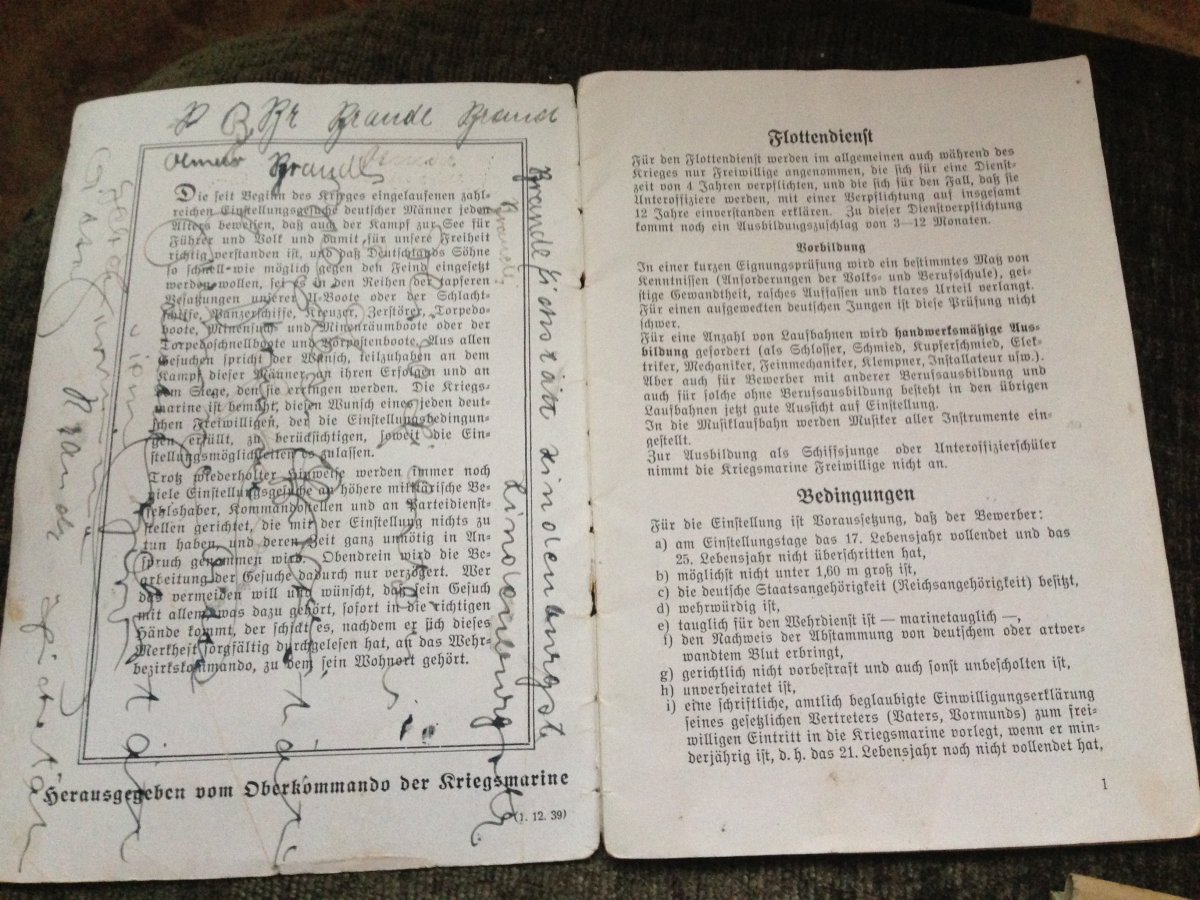 B Br Brande Brand
Brande
Die seit Beginn des Krieges eingelaufenen zahl-
reichen Einstellungsgesuche deutscher Männer jeden
Alters beweisen, daß auch der Kampf zur See für
Führer und Volk und damit für unsere Freiheit
richtig verstanden ist, und daß Deutschlands Söhne
so schnell wie möglich gegen den Feind eingesetzt
werden wollen, sei es in den Reihen der tapferen
Besatzungen unserer U-Boote oder der Schlacht-
schiffe, Panzerschiffe, Kreuzer, Zerstörer, Torpedo-
boote, Minensuch- und Minenräumboote oder der
Torpedoschnellboote und Vorpostenboote. Aus allen
Gesuchen spricht der Wunsch, teilzuhaben an dem
Kampf dieser Männer, an ihren Erfolgen und an
dem Siege, den sie erringen werden. Die Kriegs-
marine ist bemüht, diesen Wunsch eines jeden deut-
schen Freiwilligen, der die Einstellungsbedingun-
gen erfüllt, zu berücksichtigen, soweit die Ein-
stellungsmöglichkeiten es zulassen.
Trotz wiederholter Hinweise werden immer noch
viele Einstellungsgesuche an höhere militärische Be-
fehlshaber, Kommandostellen und an Parteidienst-
stellen gerichtet, die mit der Einstellung nichts zu
tun haben, und deren Zeit ganz unnötig in An-
spruch genommen wird. Obendrein wird die Be-
arbeitung der Gesuche dadurch nur verzögert. Wer
das vermeiden will und wünscht, daß sein Gesuch
mit allem was dazu gehört, sofort in die richtigen
Hände kommt, der schickt es, nachdem er sich dieses
Merkheft sorgfältig durchgelesen hat, an das Wehr-
bezirkskommando, zu dem sein Wohnort gehört.
Brande
Lindenburgst
Herausgegeben vom Oberkommando der Kriegsmarine
(1. 12. 39)
Flottendienst
Für den Flottendienst werden im allgemeinen auch während des
Krieges nur Freiwillige angenommen, die sich für eine Dienst-
zeit von 4 Jahren verpflichten, und die sich für den Fall, daß sie
Unteroffiziere werden, mit einer Verpflichtung auf insgesamt
12 Jahre einverstanden erklären. Zu dieser Dienstverpflichtung
kommt noch ein Ausbildungszuschlag von 3—12 Monaten.
Vorbildung
In einer kurzen Eignungsprüfung wird ein bestimmtes Maß von
Kenntnissen (Anforderungen der Volks- und Berufsschule), gei-
stige Gewandtheit, rasches Auffassen und klares Urteil verlangt.
Für einen aufgeweckten deutschen Jungen ist diese Prüfung nicht
schwer.
Für eine Anzahl von Laufbahnen wird handwerksmäßige Aus-
bildung gefordert (als Schlosser, Schmied, Kupferschmied, Elek-
triker, Mechaniker, Feinmechaniker, Klempner, Installateur usw.).
Aber auch für Bewerber mit anderer Berufsausbildung und
auch für solche ohne Berufsausbildung besteht in den übrigen
Laufbahnen jetzt gute Aussicht auf Einstellung.
In die Musiklaufbahn werden Musiker aller Instrumente ein-
gestellt.
Zur Ausbildung als Schiffsjunge oder Unteroffizierschüler
nimmt die Kriegsmarine Freiwillige nicht an.
Bedingungen
Für die Einstellung ist Voraussetzung, daß der Bewerber:
a) am Einstellungstage das 17. Lebensjahr vollendet und das
25. Lebensjahr nicht überschritten hat,
b) möglichst nicht unter 1,60 m groß ist,
c) die deutsche Staatsangehörigkeit (Reichsangehörigkeit) besitzt,
d) wehrwürdig ist,
e) tauglich für den Wehrdienst ist — marinetauglich —,
f) den Nachweis der Abstammung von deutschem oder artver-
wandtem Blut erbringt,
g) gerichtlich nicht vorbestraft und auch sonst unbescholten ist,
h) unverheiratet ist,
i) eine schriftliche, amtlich beglaubigte Einwilligungserklärung
seines gesetzlichen Vertreters (Vaters, Vormunds) zum frei-
willigen Eintritt in die Kriegsmarine vorlegt, wenn er min-
derjährig ist, d. h. das 21. Lebensjahr noch nicht vollendet hat,
1